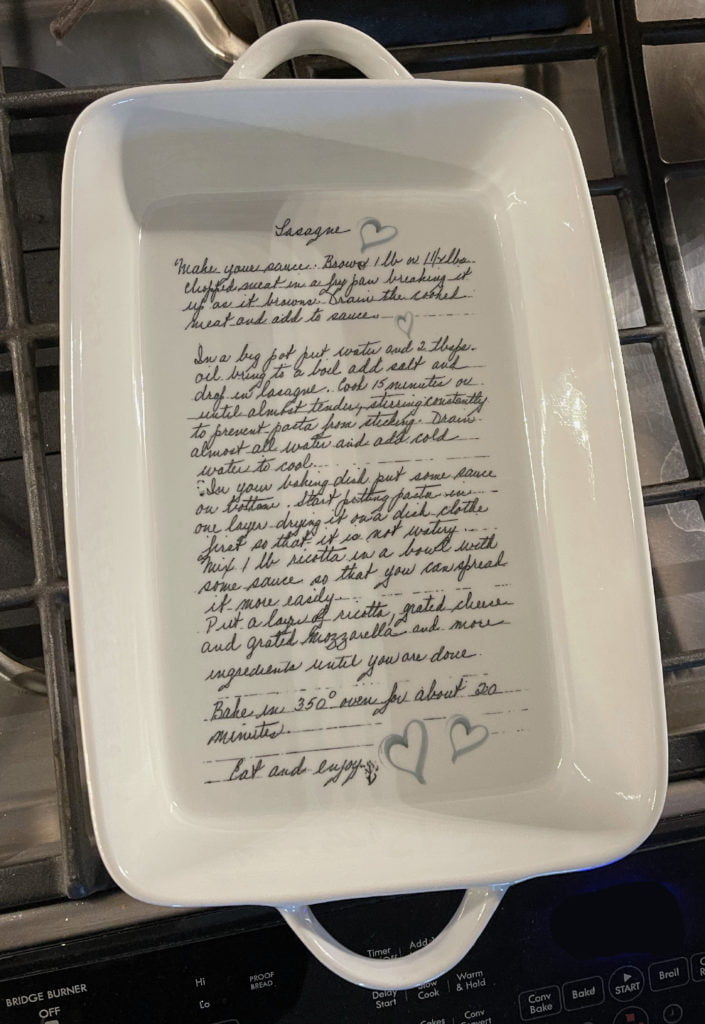 Lasagne
Make your sauce. Brown 1 lb or 1 1/2 lbs.
chopped meat in a fry pan breaking it
up as it browns. Drain the cooked
meat and add to sauce.
In a big pot put water and 2 tbsps.
oil bring to a boil add salt and
drop in lasagne. Cook 15 minutes or
until almost tender, stirring constantly
to prevent pasta from sticking. Drain
almost all water and add cold
water to cool.
In your baking dish put some sauce
on bottom. Start putting pasta in
one layer drying it on a dish clothe
first so that it is not watery.
Mix 1 lb ricotta in a bowl with
some sauce so that you can spread
it more easily.
Put a layer of ricotta, grated cheese
and grated mozzarella and more
ingredients until you are done.
Bake in 350° oven for about 20
minutes.
Eat and enjoy
BRIDGE BURNER
OFF
Hi
Lo
PROOF
BREAD
Timer
Add
Delay
Start
Slow
Cook
Warm
& Hold
Conv
Bake
Bake
START
Broil
Conv